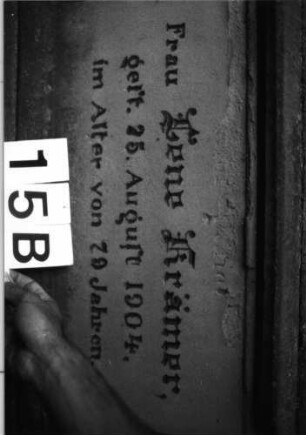 Frau
Lene Krämer,
gest. 25. August 1904,
im Alter von 79 Jahren.
15B